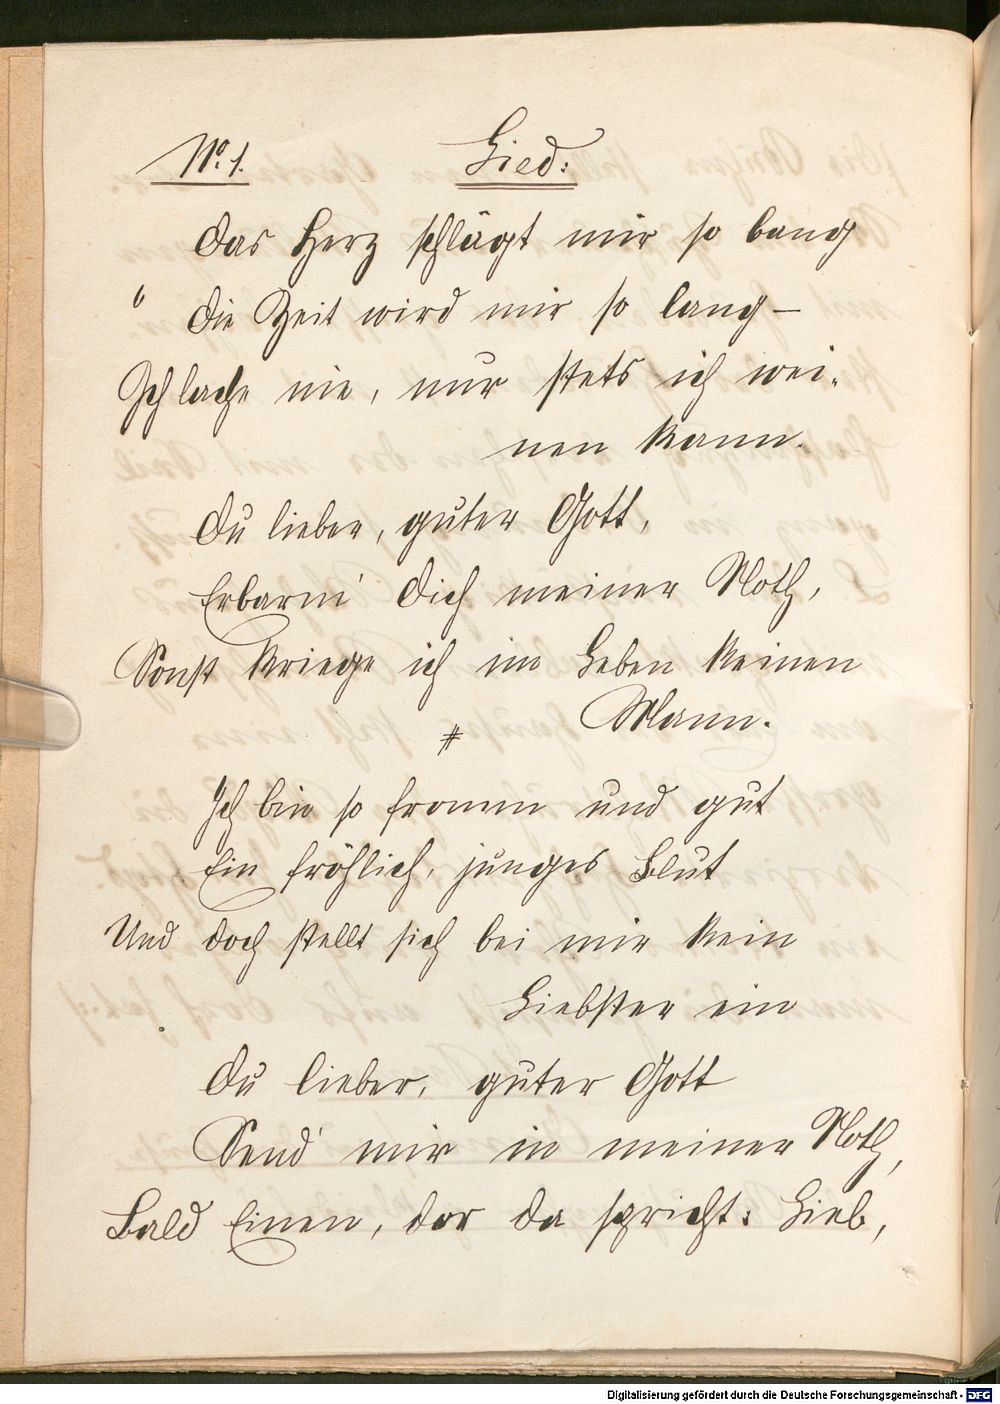 No. 1. Lied:
Das Herz schlägt mir so bang
" Die Zeit wird mir so lang –
Ich lache nie, nur stets ich wei-
nen kann.
Du lieber, guter Gott,
Erbarm' Dich meiner Noth,
Sonst kriege ich im Leben keinen
Mann.
#
Ich bin so fromm und gut
Ein fröhlich, junges Blut
Und doch stellt sich bei mir kein
Liebster ein
Du lieber, guter Gott
Send' mir in meiner Noth,
Bald Einen, der da spricht: Lieb,
Digitalisierung gefördert durch die Deutsche Forschungsgemeinschaft - DFG